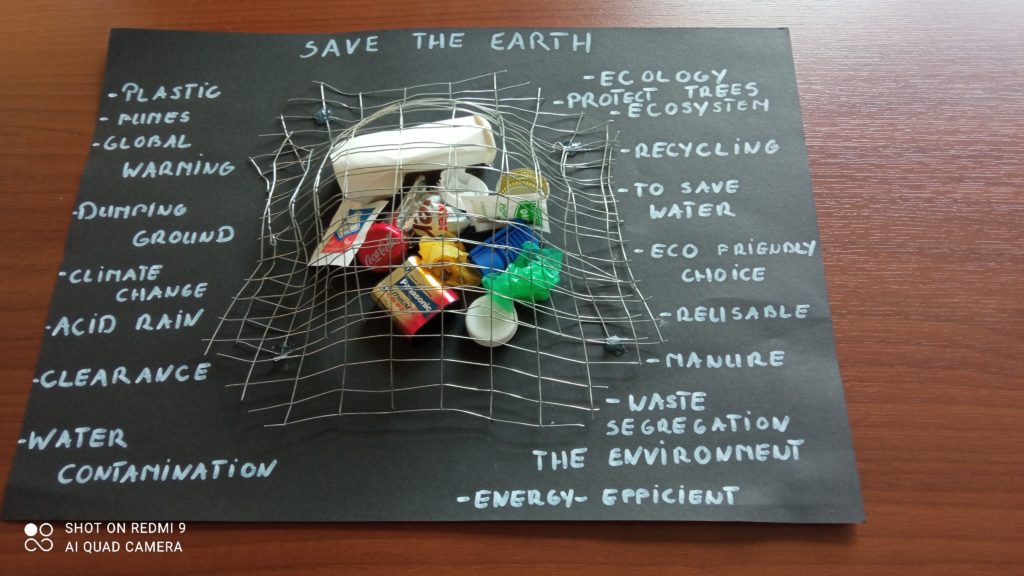 SAVE THE EARTH
-PLASTIC
- FUMES
-GLOBAL
WARMING
-DUMPING
GROUND
-CLIMATE
CHANGE
-ACID RAIN
-CLEARANCE
-WATER
CONTAMINATION
-ECOLOGY
-PROTECT TREES
-ECOSYSTEM
-RECYCLING
-TO SAVE
WATER
-ECO FRIENDLY
CHOICE
-REUSABLE
-MANURE
-WASTE
SEGREGATION
THE ENVIRONMENT
-ENERGY-EFFICIENT
Coca-Cola
Panasonic
SHOT ON REDMI 9
AI QUAD CAMERA